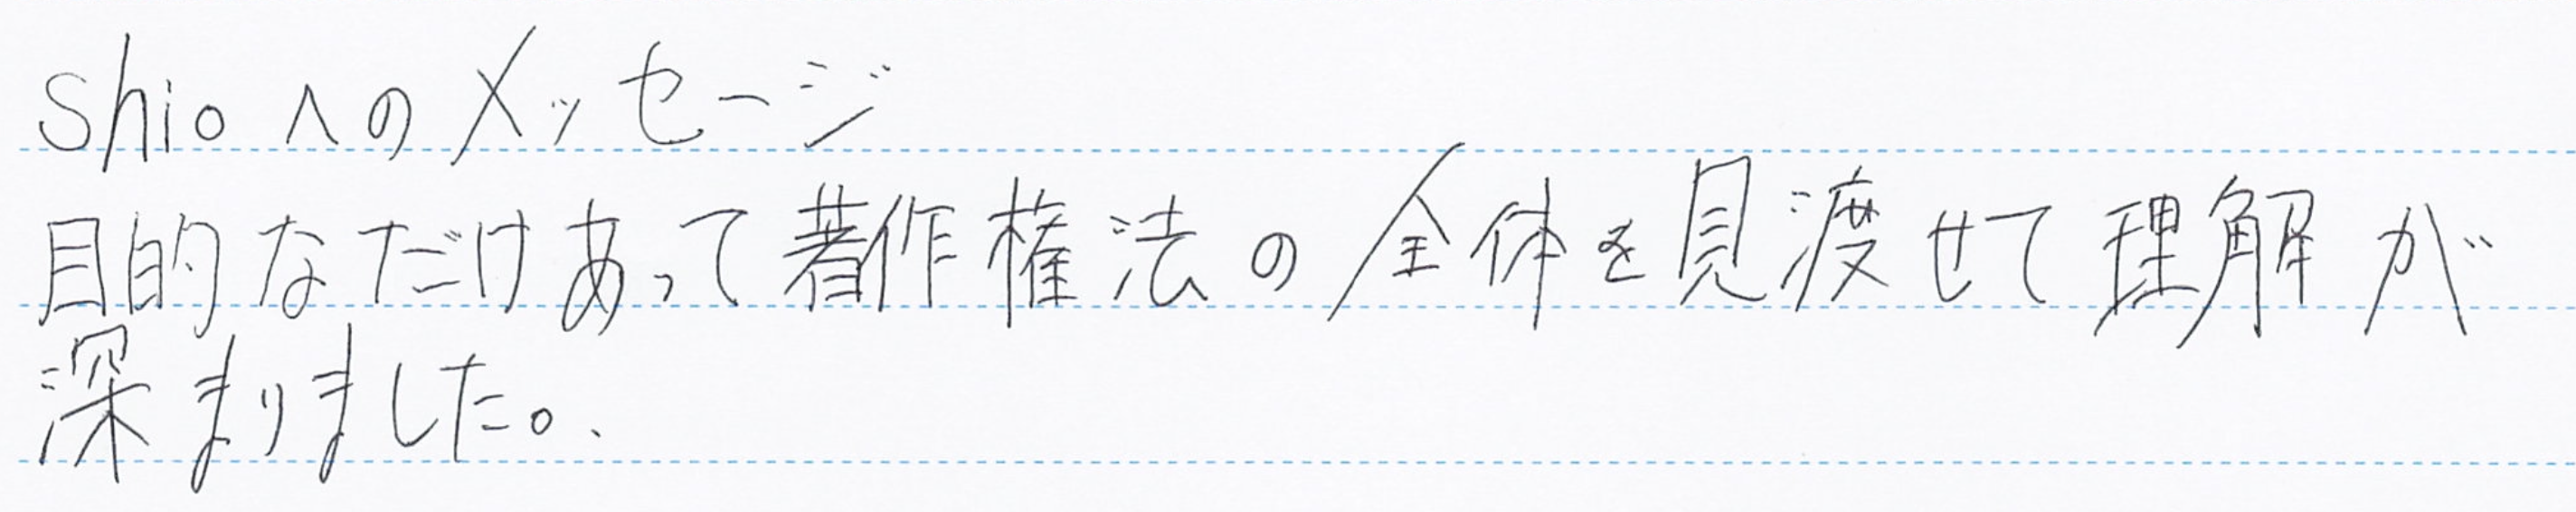 shioへのメッセージ
目的なだけあって著作権法の全体を見渡せて理解が
深まりました。